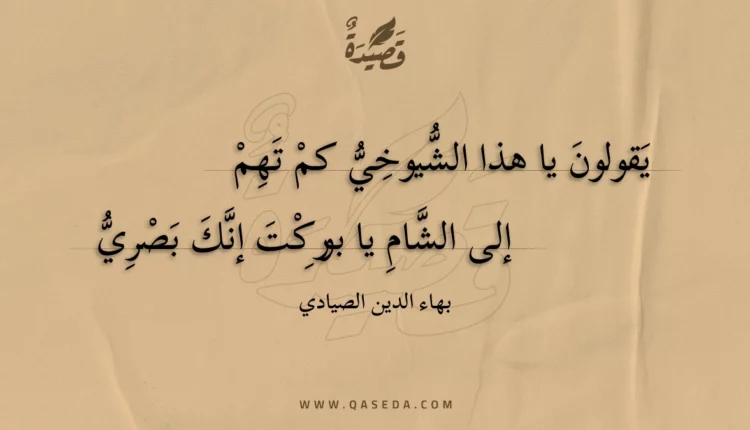 قَصِيدَةٌ
يَقولونَ يا هذا الشُّيوخِيُّ كمْ تَهِمْ
إلى الشَّامِ يا بورِكْتَ إنَّكَ بَصْرِيُّ
بهاء الدين الصيادي
WWW.QASEDA.COM